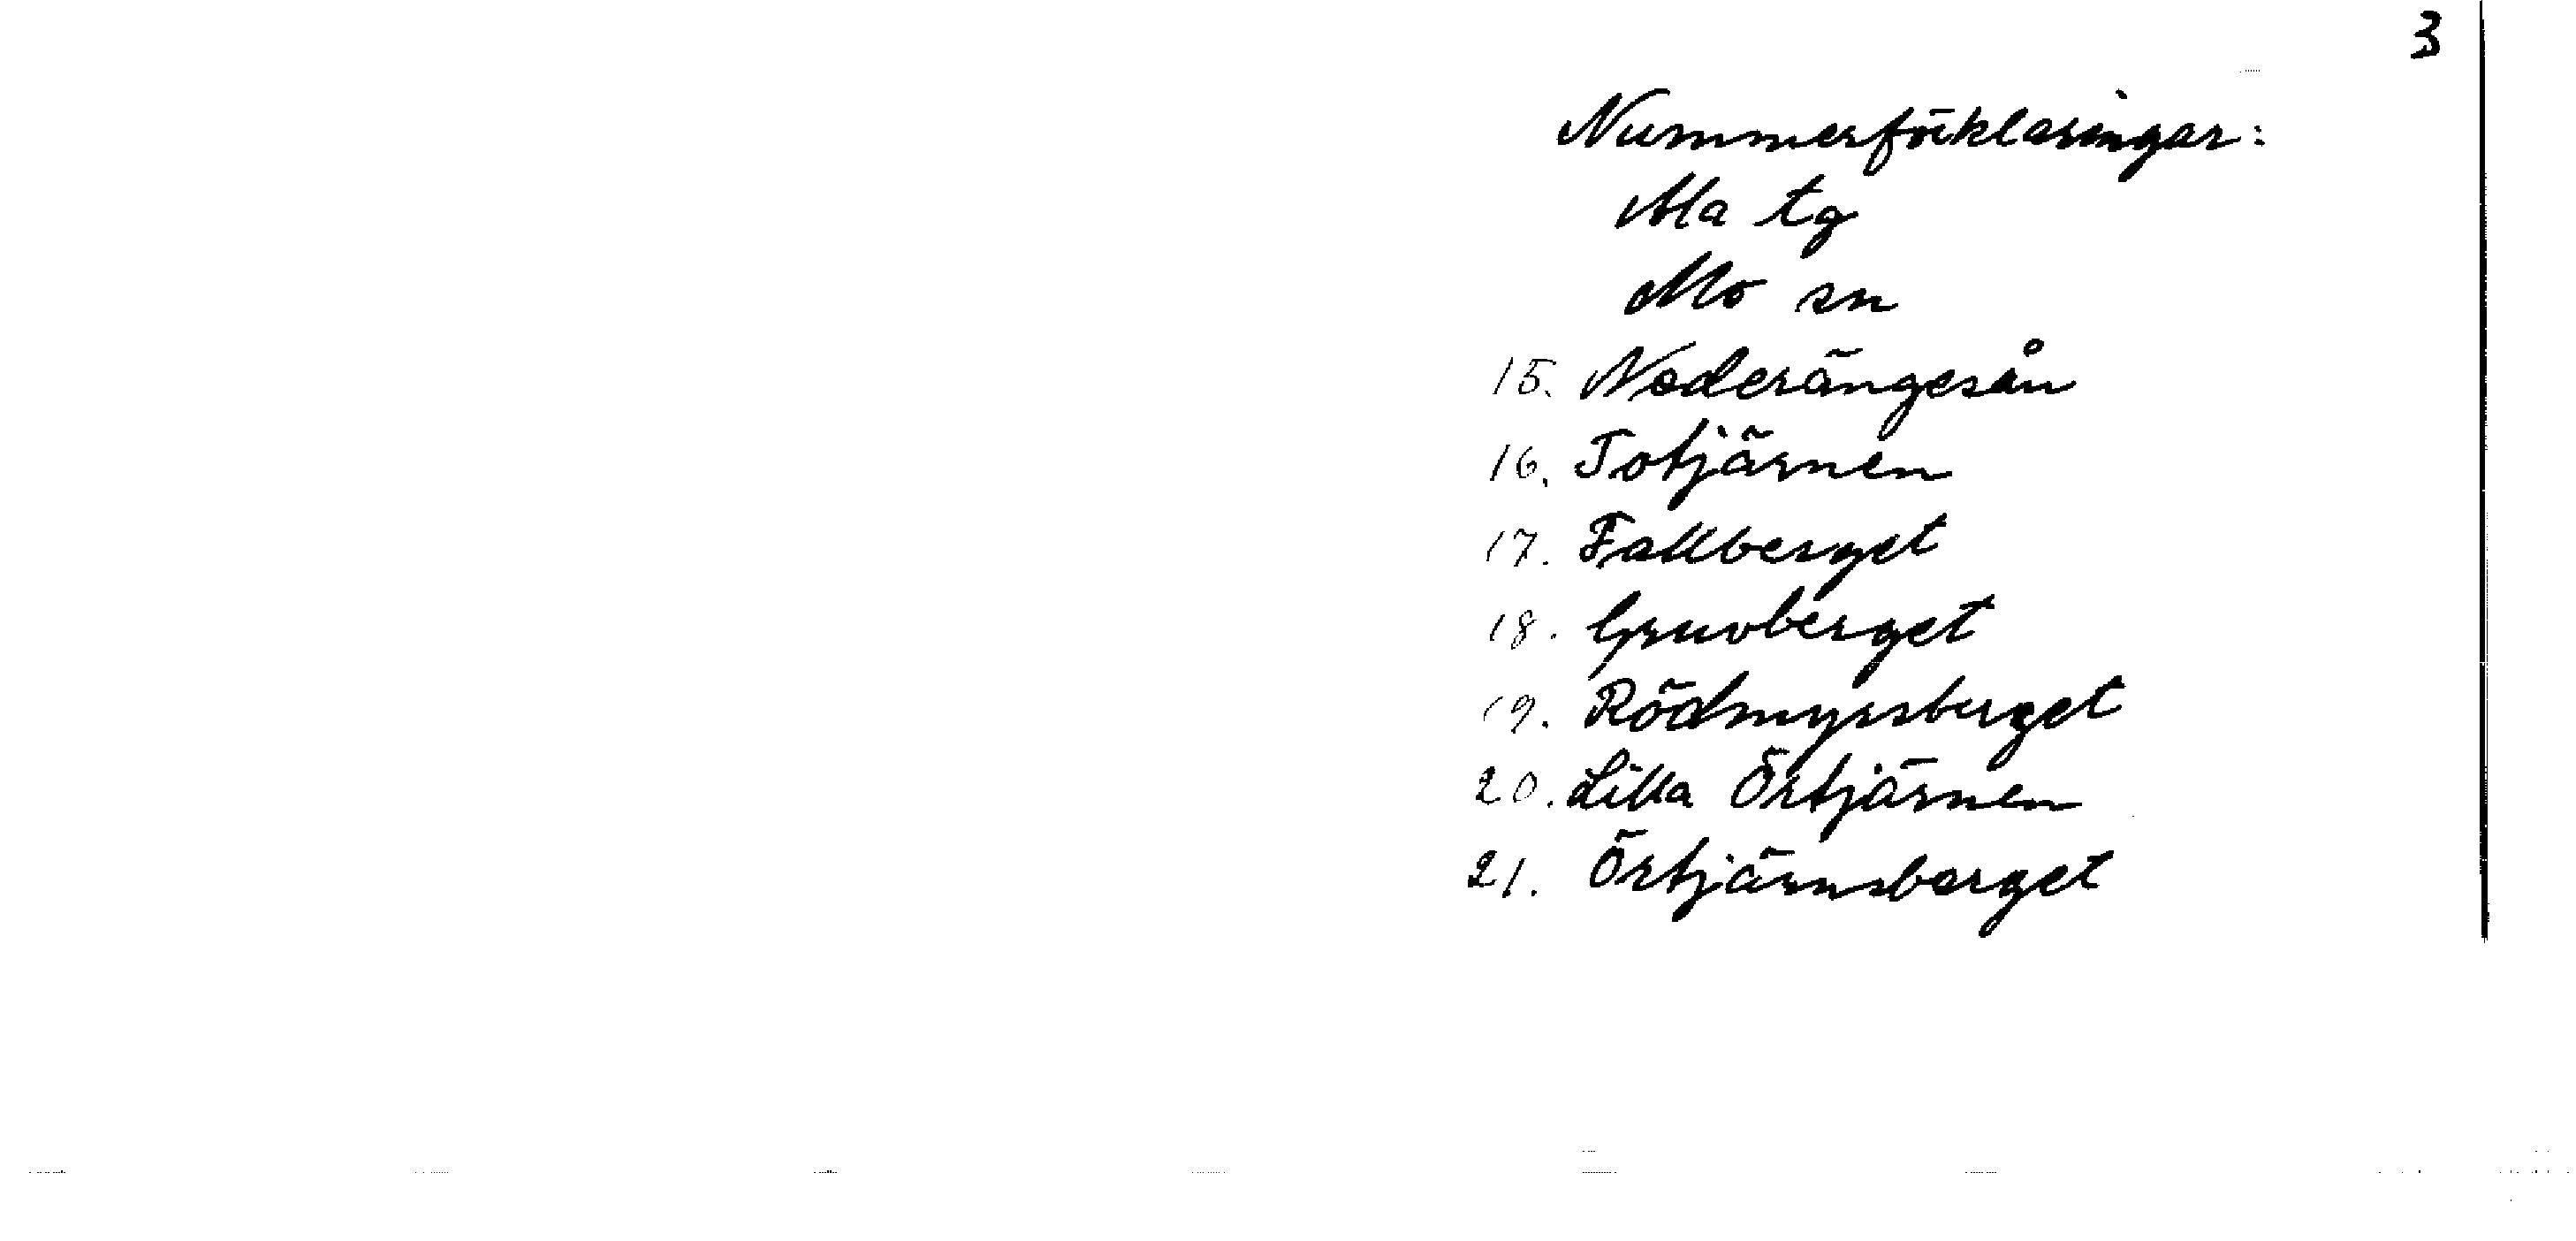 3
Nummerförklaringar:
Ala tg
Mo sn
15. Noderängesån
16. Totjärnen
17. Fallberget
18. Gruvberget
19. Rödmyrsberget
20. Lilla Örtjärnen
21. Örtjärnsberget